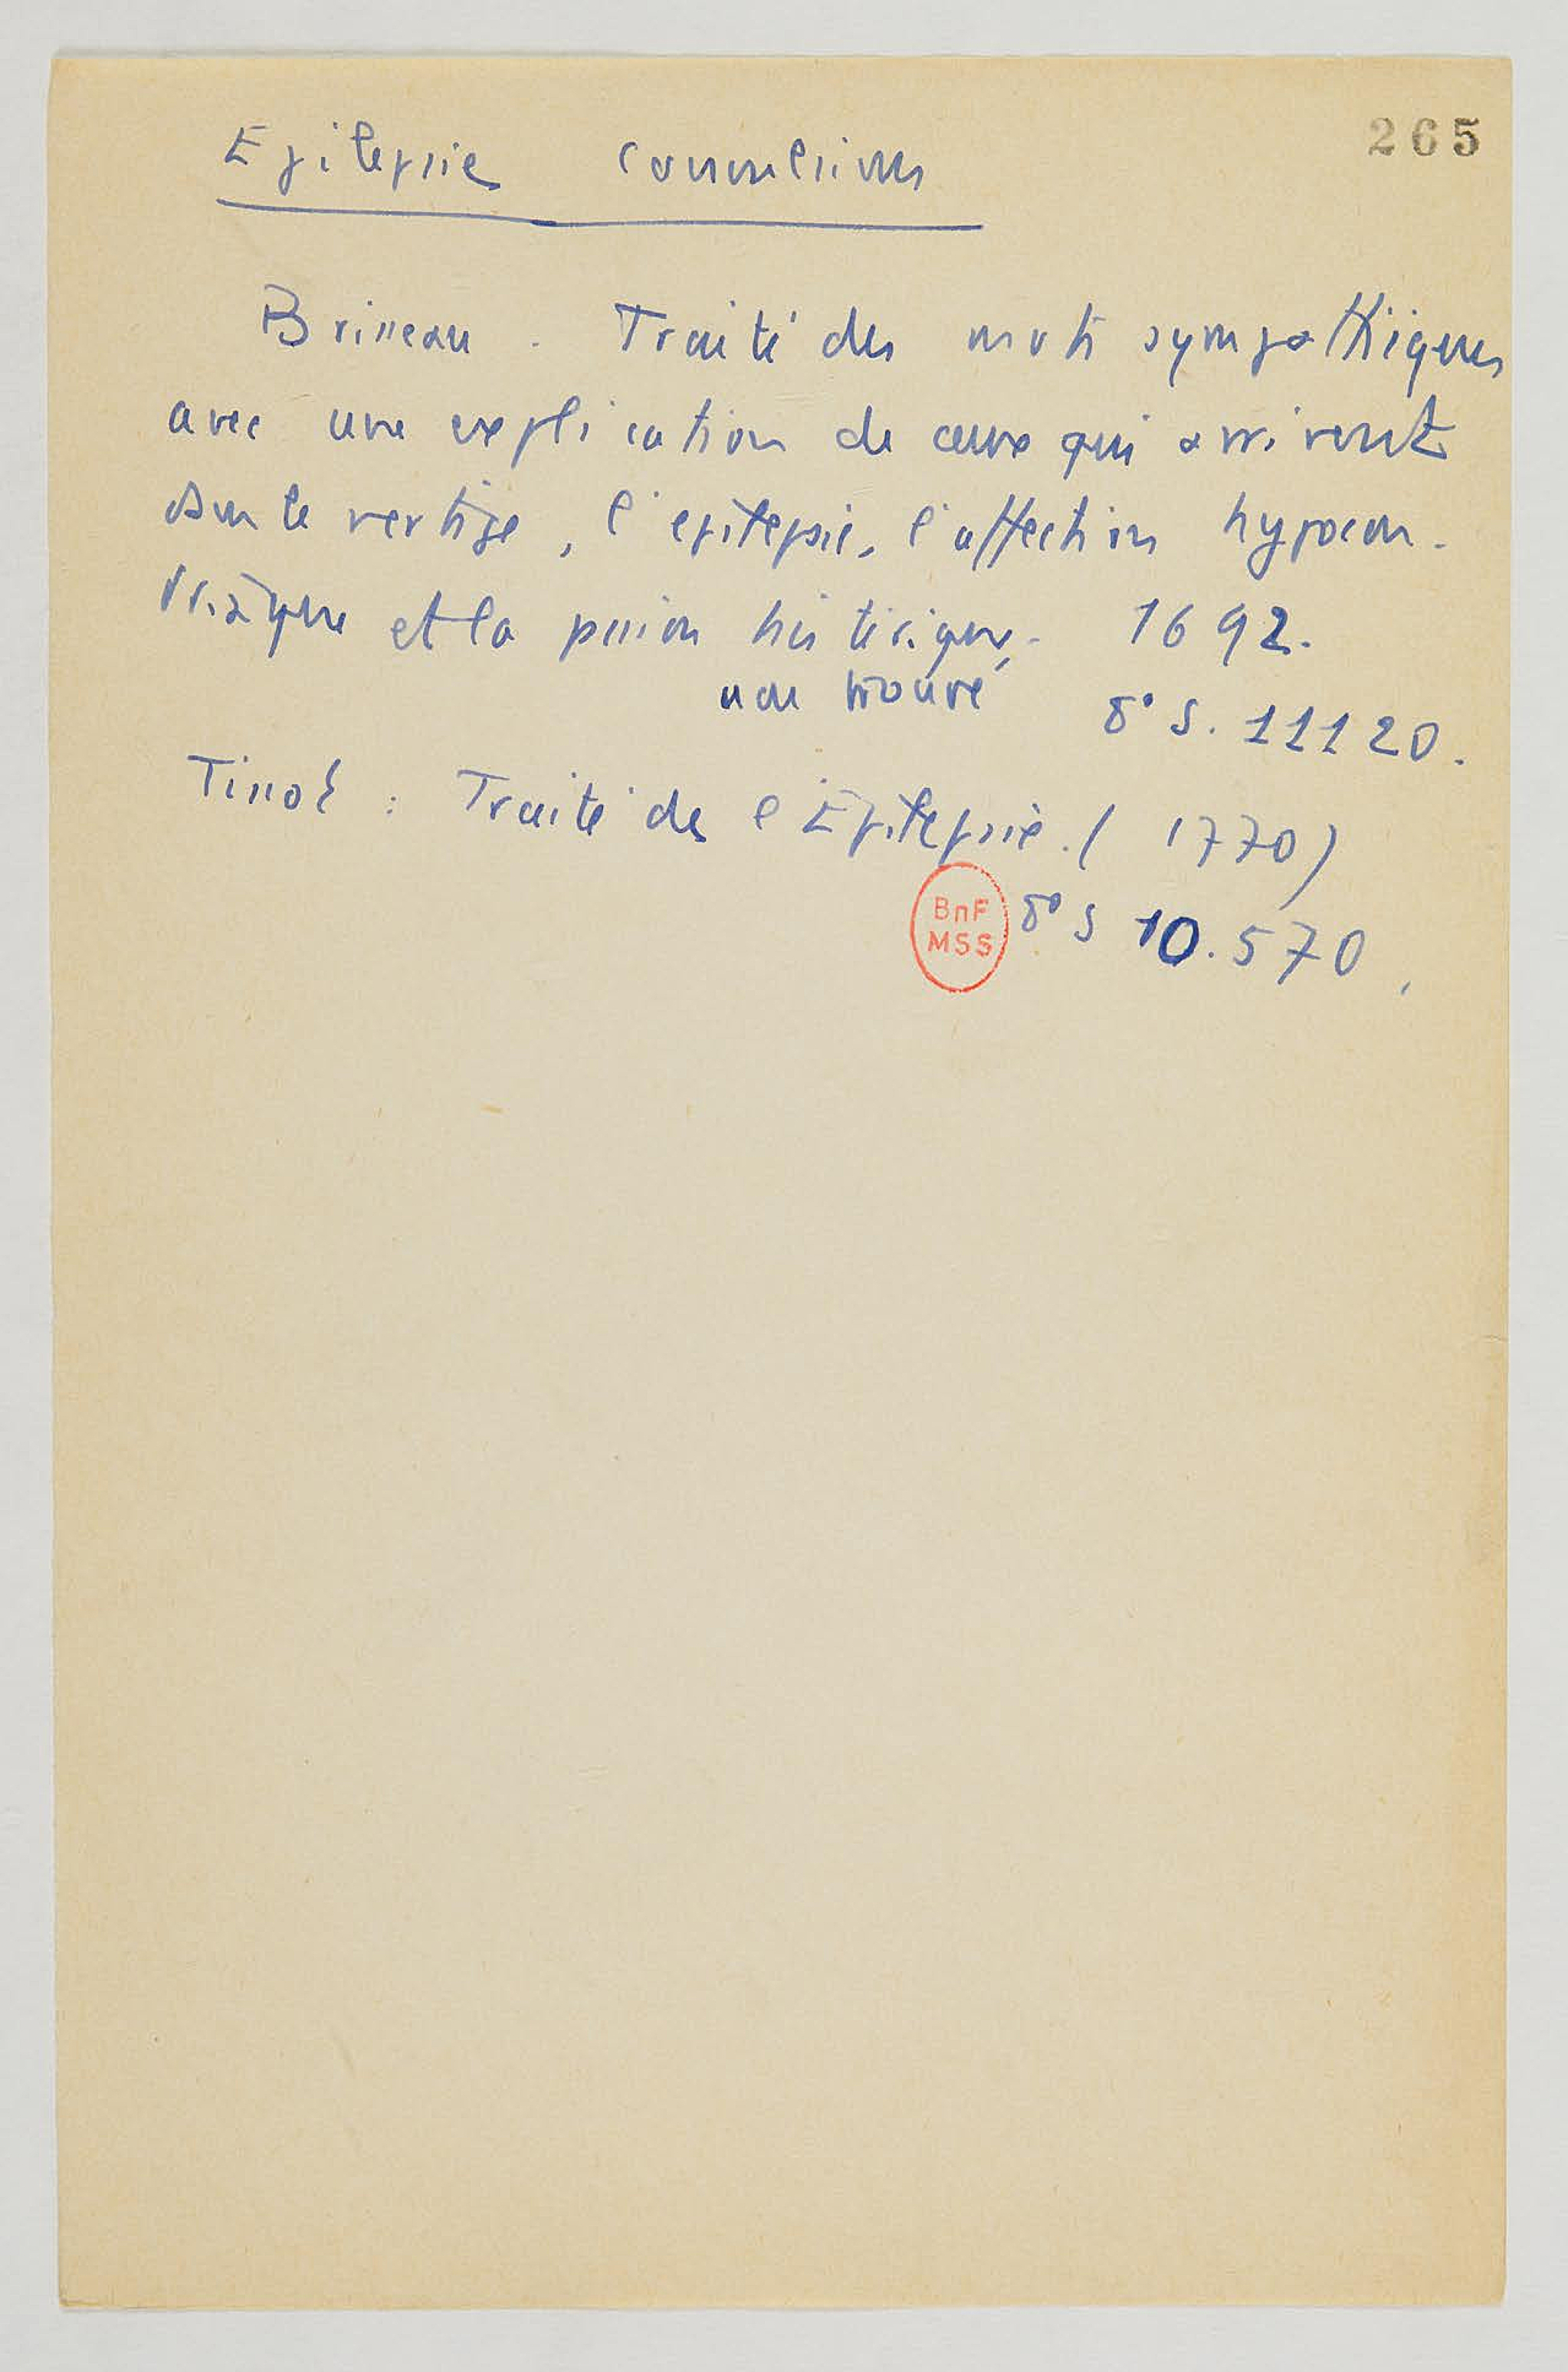 265
Epilepsie convulsions
Brisseau. Traité des mvts sympathiques
avec une explication de ceux qui arrivent
dans le vertige, l'epilepsie, l'affection hypocon-
driaque et la passion histérique. 1692.
non trouvé 8° S. 11120.
Tissot : Traité de l'Epilepsie. (1770)
BnF
MSS
8° S 10.570.